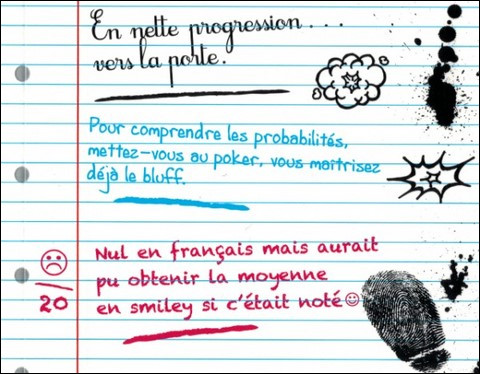 En nette progression . . .
vers la porte.
Pour comprendre les probabilités,
mettez-vous au poker, vous maîtrisez
déjà le bluff.
Nul en français mais aurait
pu obtenir la moyenne
en smiley si c'était noté☺
☹
20